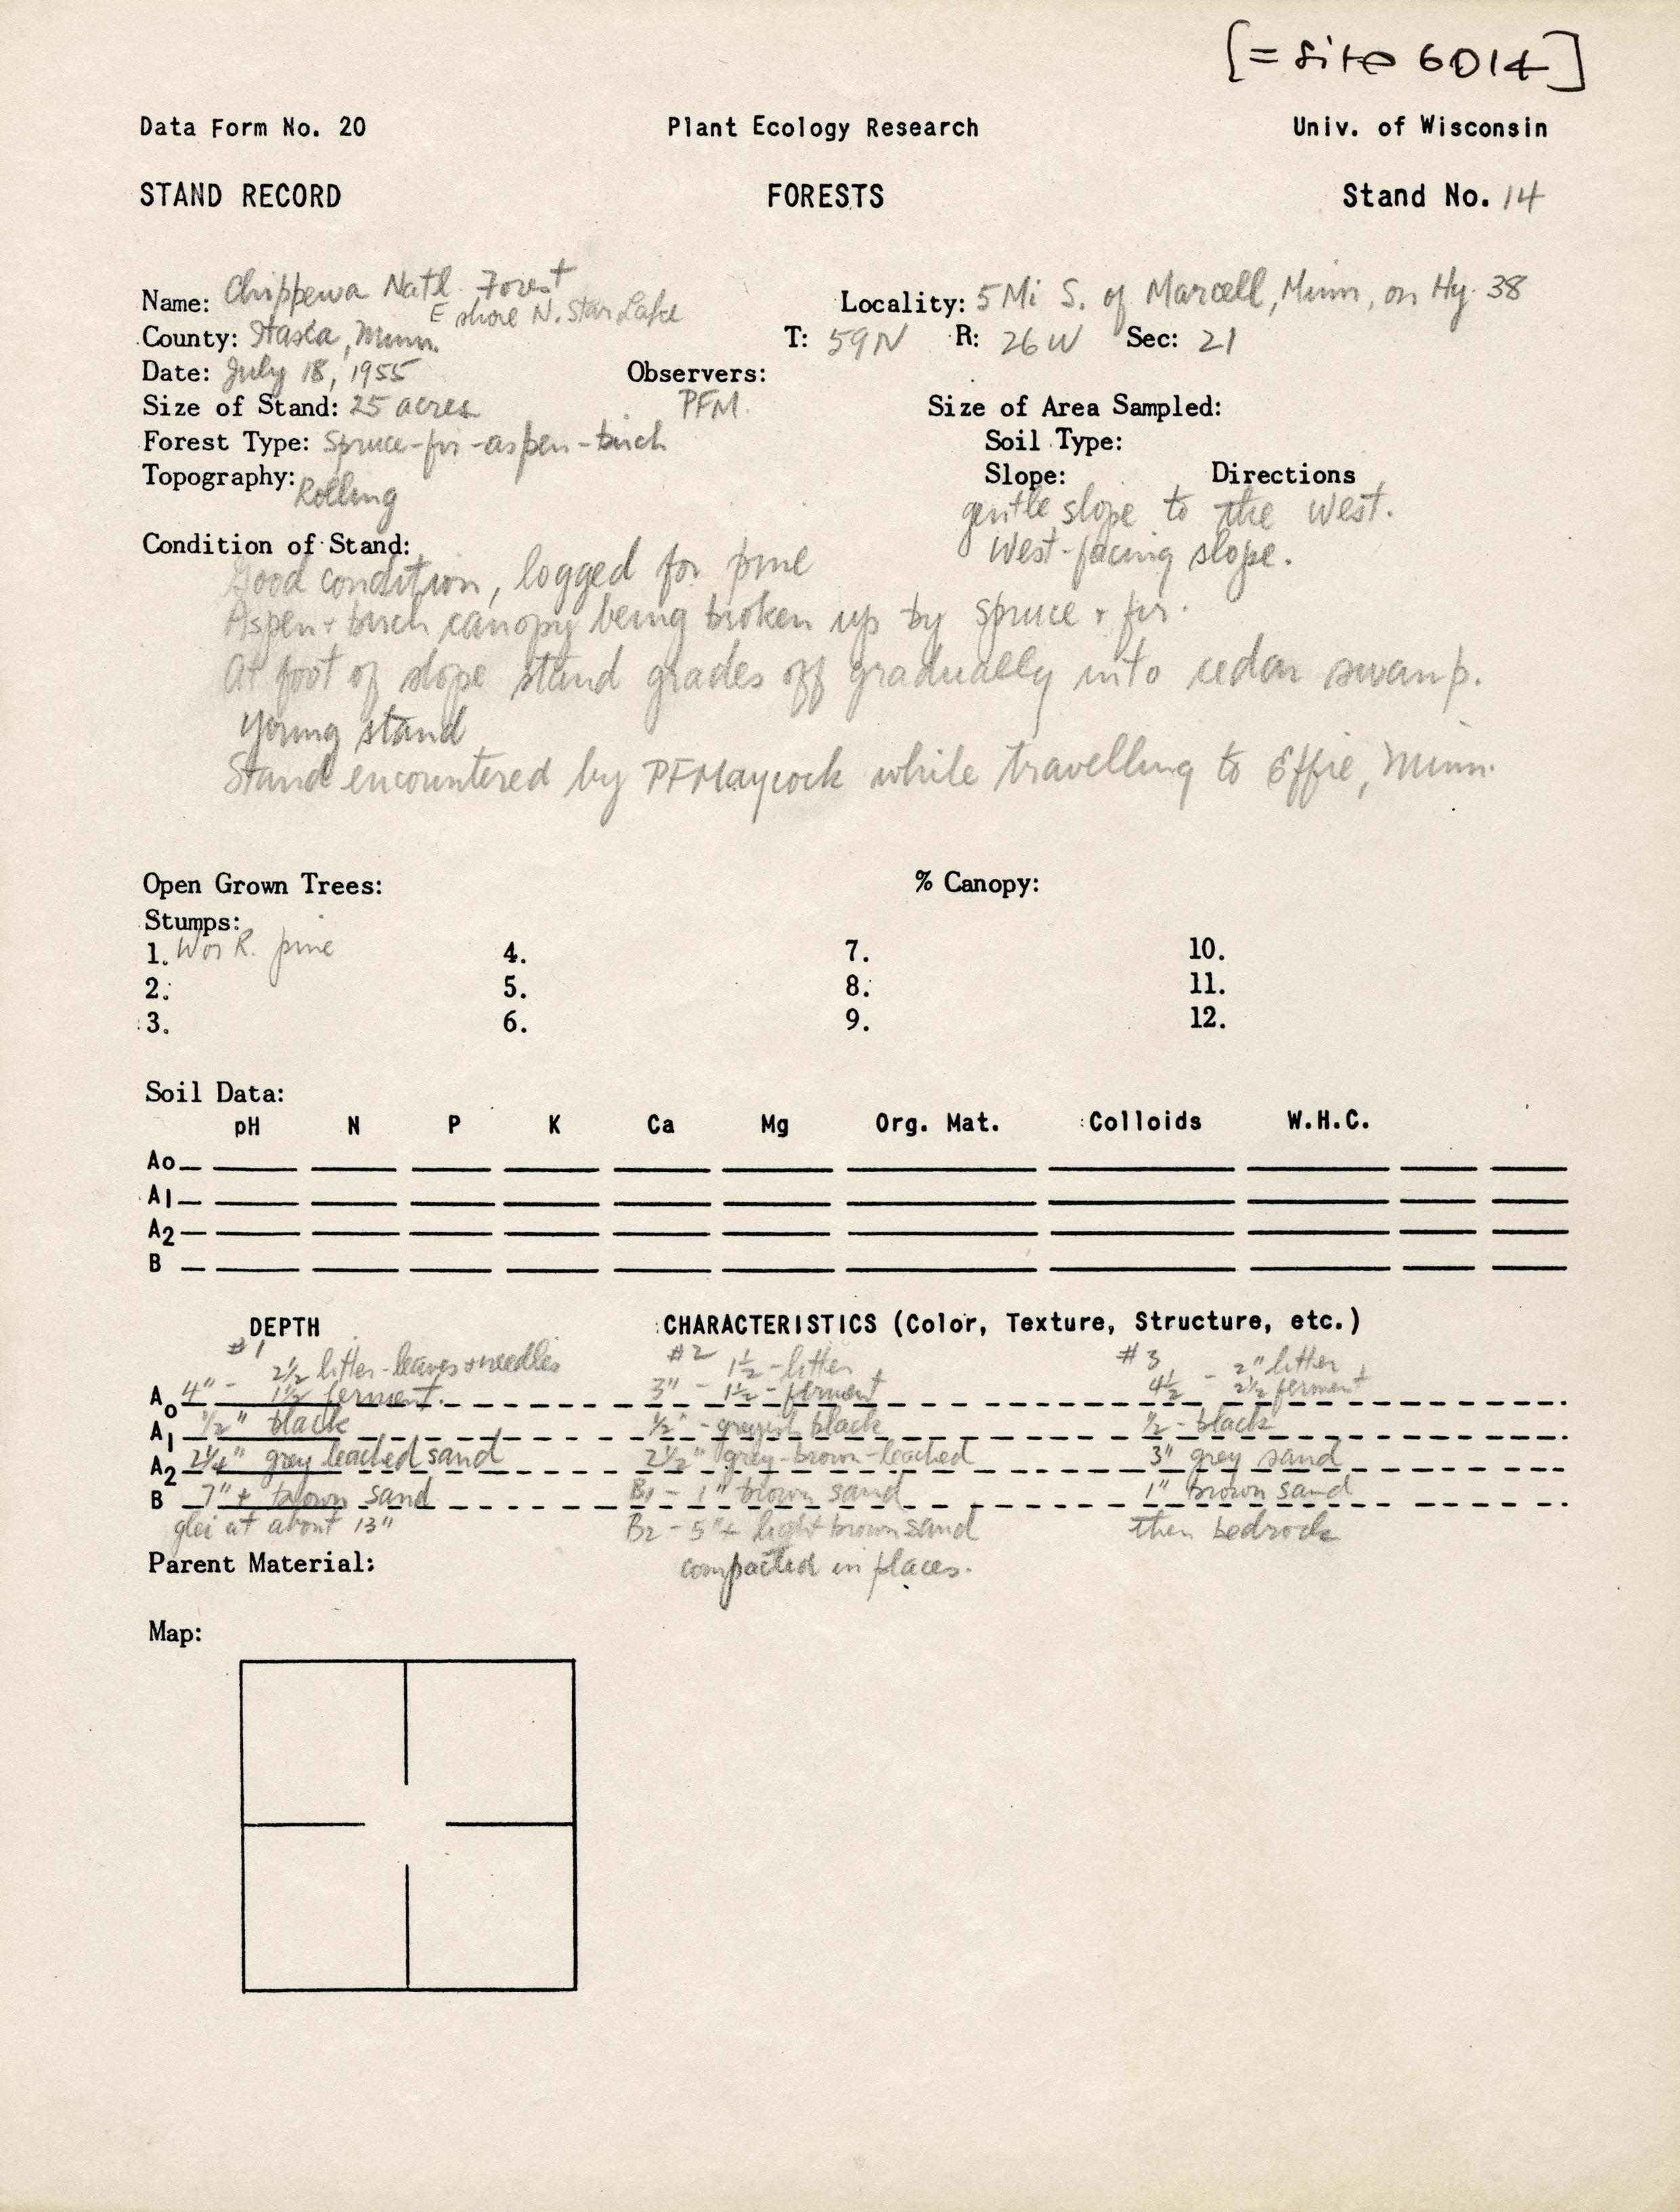 [= site 6014]
Data Form No. 20 Plant Ecology Research Univ. of Wisconsin
STAND RECORD FORESTS Stand No. 14
Name: Chippewa Natl. Forest Locality: 5 Mi S. of Marcell, Minn, on Hy. 38
E shore N. Star Lake
County: Itasca, Minn. T: 59N R: 26W Sec: 21
Date: July 18, 1955 Observers:
Size of Stand: 25 acres PFM. Size of Area Sampled:
Forest Type: Spruce-fir-aspen-birch Soil Type:
Topography: Rolling Slope: Directions
gentle slope to the West.
Condition of Stand: West-facing slope.
Good condition, logged for pine
Aspen + birch canopy being broken up by spruce + fir.
At foot of slope stand grades off gradually into cedar swamp.
Young stand
Stand encountered by PFMaycock while travelling to Effie, Minn.
Open Grown Trees: % Canopy:
Stumps:
1. W or R. pine 4. 7. 10.
2. 5. 8. 11.
3. 6. 9. 12.
Soil Data:
pH N P K Ca Mg Org. Mat. Colloids W.H.C.
Ao
A1
A2
B
DEPTH CHARACTERISTICS (Color, Texture, Structure, etc.)
#1 2½ litter-leaves+needles #2 1½ - litter #3 2" litter
Ao 4" - 1½ ferment. 3" - 1½ - ferment 4½ - 2½ ferment
A1 ½" black ½" - greyish black ½ - black
A2 2¼" grey leached sand 2½" grey-brown-leached 3" grey sand
B 7"+ brown sand B1 - 1" brown sand 1" brown sand
glei at about 13" B2 - 5"+ light brown sand then bedrock
Parent Material: compacted in places.
Map: